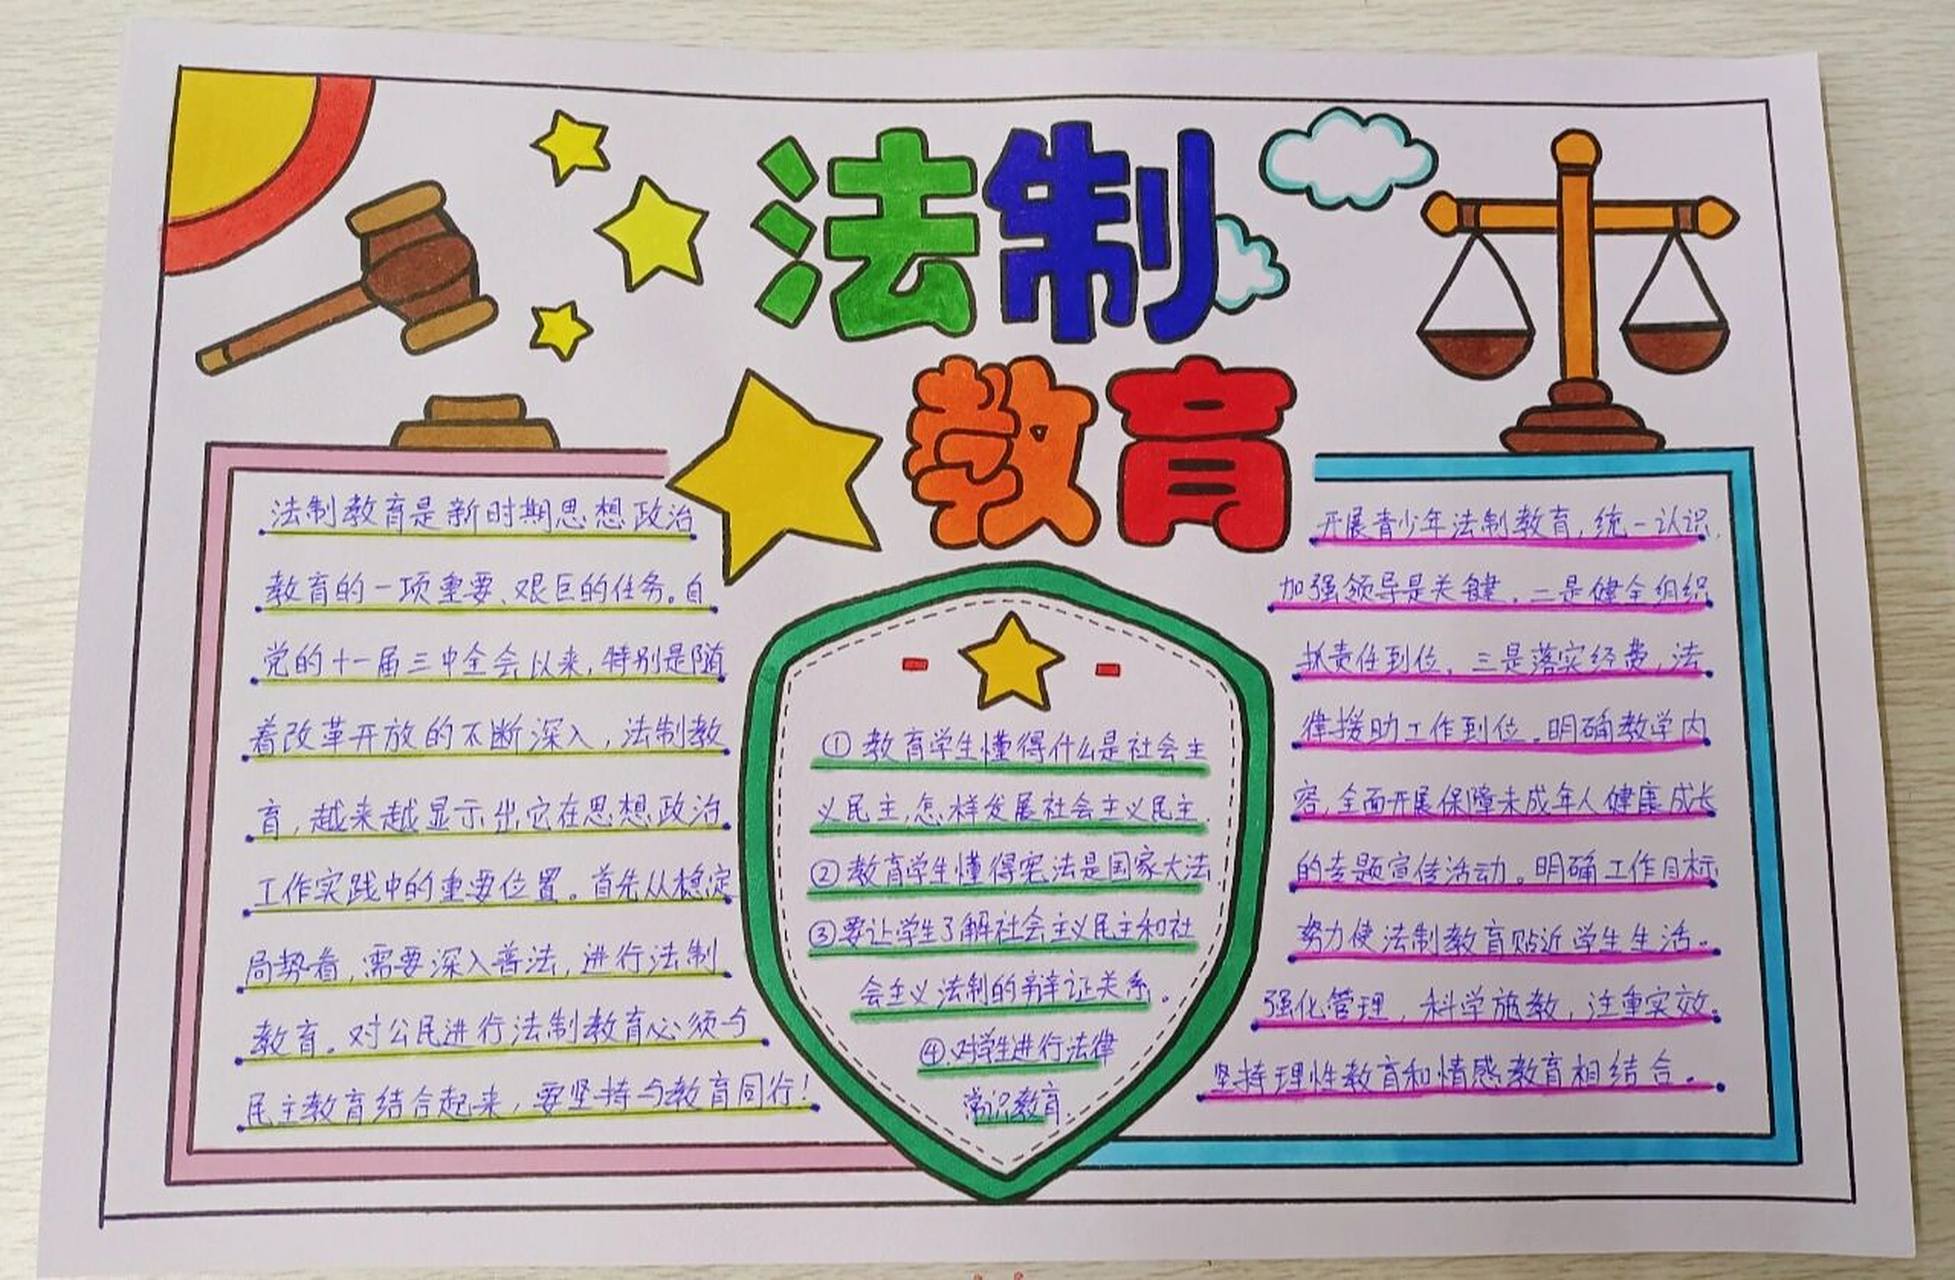 法制
教育
法制教育是新时期思想政治
教育的一项重要、艰巨的任务。自
党的十一届三中全会以来,特别是随
着改革开放的不断深入,法制教
育,越来越显示出它在思想政治
工作实践中的重要位置。首先从稳定
局势看,需要深入普法,进行法制
教育。对公民进行法制教育必须与
民主教育结合起来,要坚持与教育同行!
①教育学生懂得什么是社会主
义民主,怎样发展社会主义民主.
②教育学生懂得宪法是国家大法.
③要让学生了解社会主义民主和社
会主义法制的辩证关系。
④.对学生进行法律
常识教育.
开展青少年法制教育,统一认识,
加强领导是关键。二是健全组织
抓责任到位。三是落实经费,法
律援助工作到位。明确教学内
容,全面开展保障未成年人健康成长
的专题宣传活动。明确工作目标
努力使法制教育贴近学生生活。
强化管理,科学施教,注重实效。
坚持理性教育和情感教育相结合。